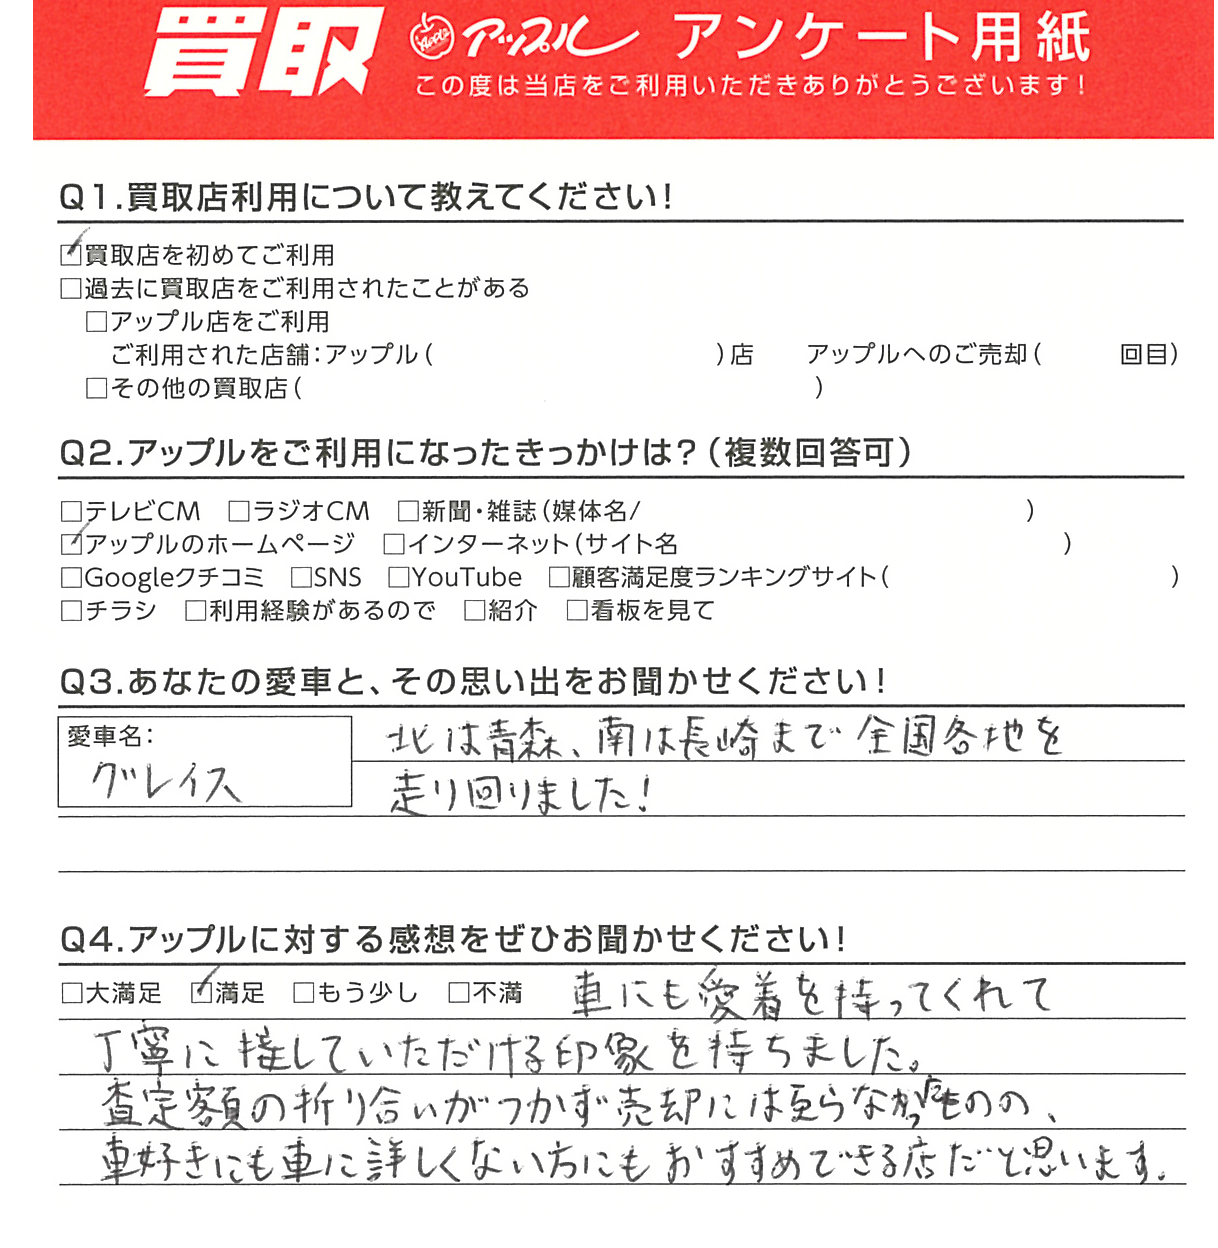 買取 Apple アップル アンケート用紙
この度は当店をご利用いただきありがとうございます!
Q1.買取店利用について教えてください!
☑買取店を初めてご利用
□過去に買取店をご利用されたことがある
□アップル店をご利用
ご利用された店舗:アップル( )店 アップルへのご売却( 回目)
□その他の買取店( )
Q2.アップルをご利用になったきっかけは?(複数回答可)
□テレビCM □ラジオCM □新聞・雑誌(媒体名/ )
☑アップルのホームページ □インターネット(サイト名 )
□Googleクチコミ □SNS □YouTube □顧客満足度ランキングサイト( )
□チラシ □利用経験があるので □紹介 □看板を見て
Q3.あなたの愛車と、その思い出をお聞かせください!
愛車名:
グレイス
北は青森、南は長崎まで全国各地を
走り回りました!
Q4.アップルに対する感想をぜひお聞かせください!
□大満足 ☑満足 □もう少し □不満 車にも愛着を持ってくれて
丁寧に接していただける印象を持ちました。
査定額の折り合いがつかず売却には至らなかったものの、
車好きにも車に詳しくない方にもおすすめできる店だと思います。